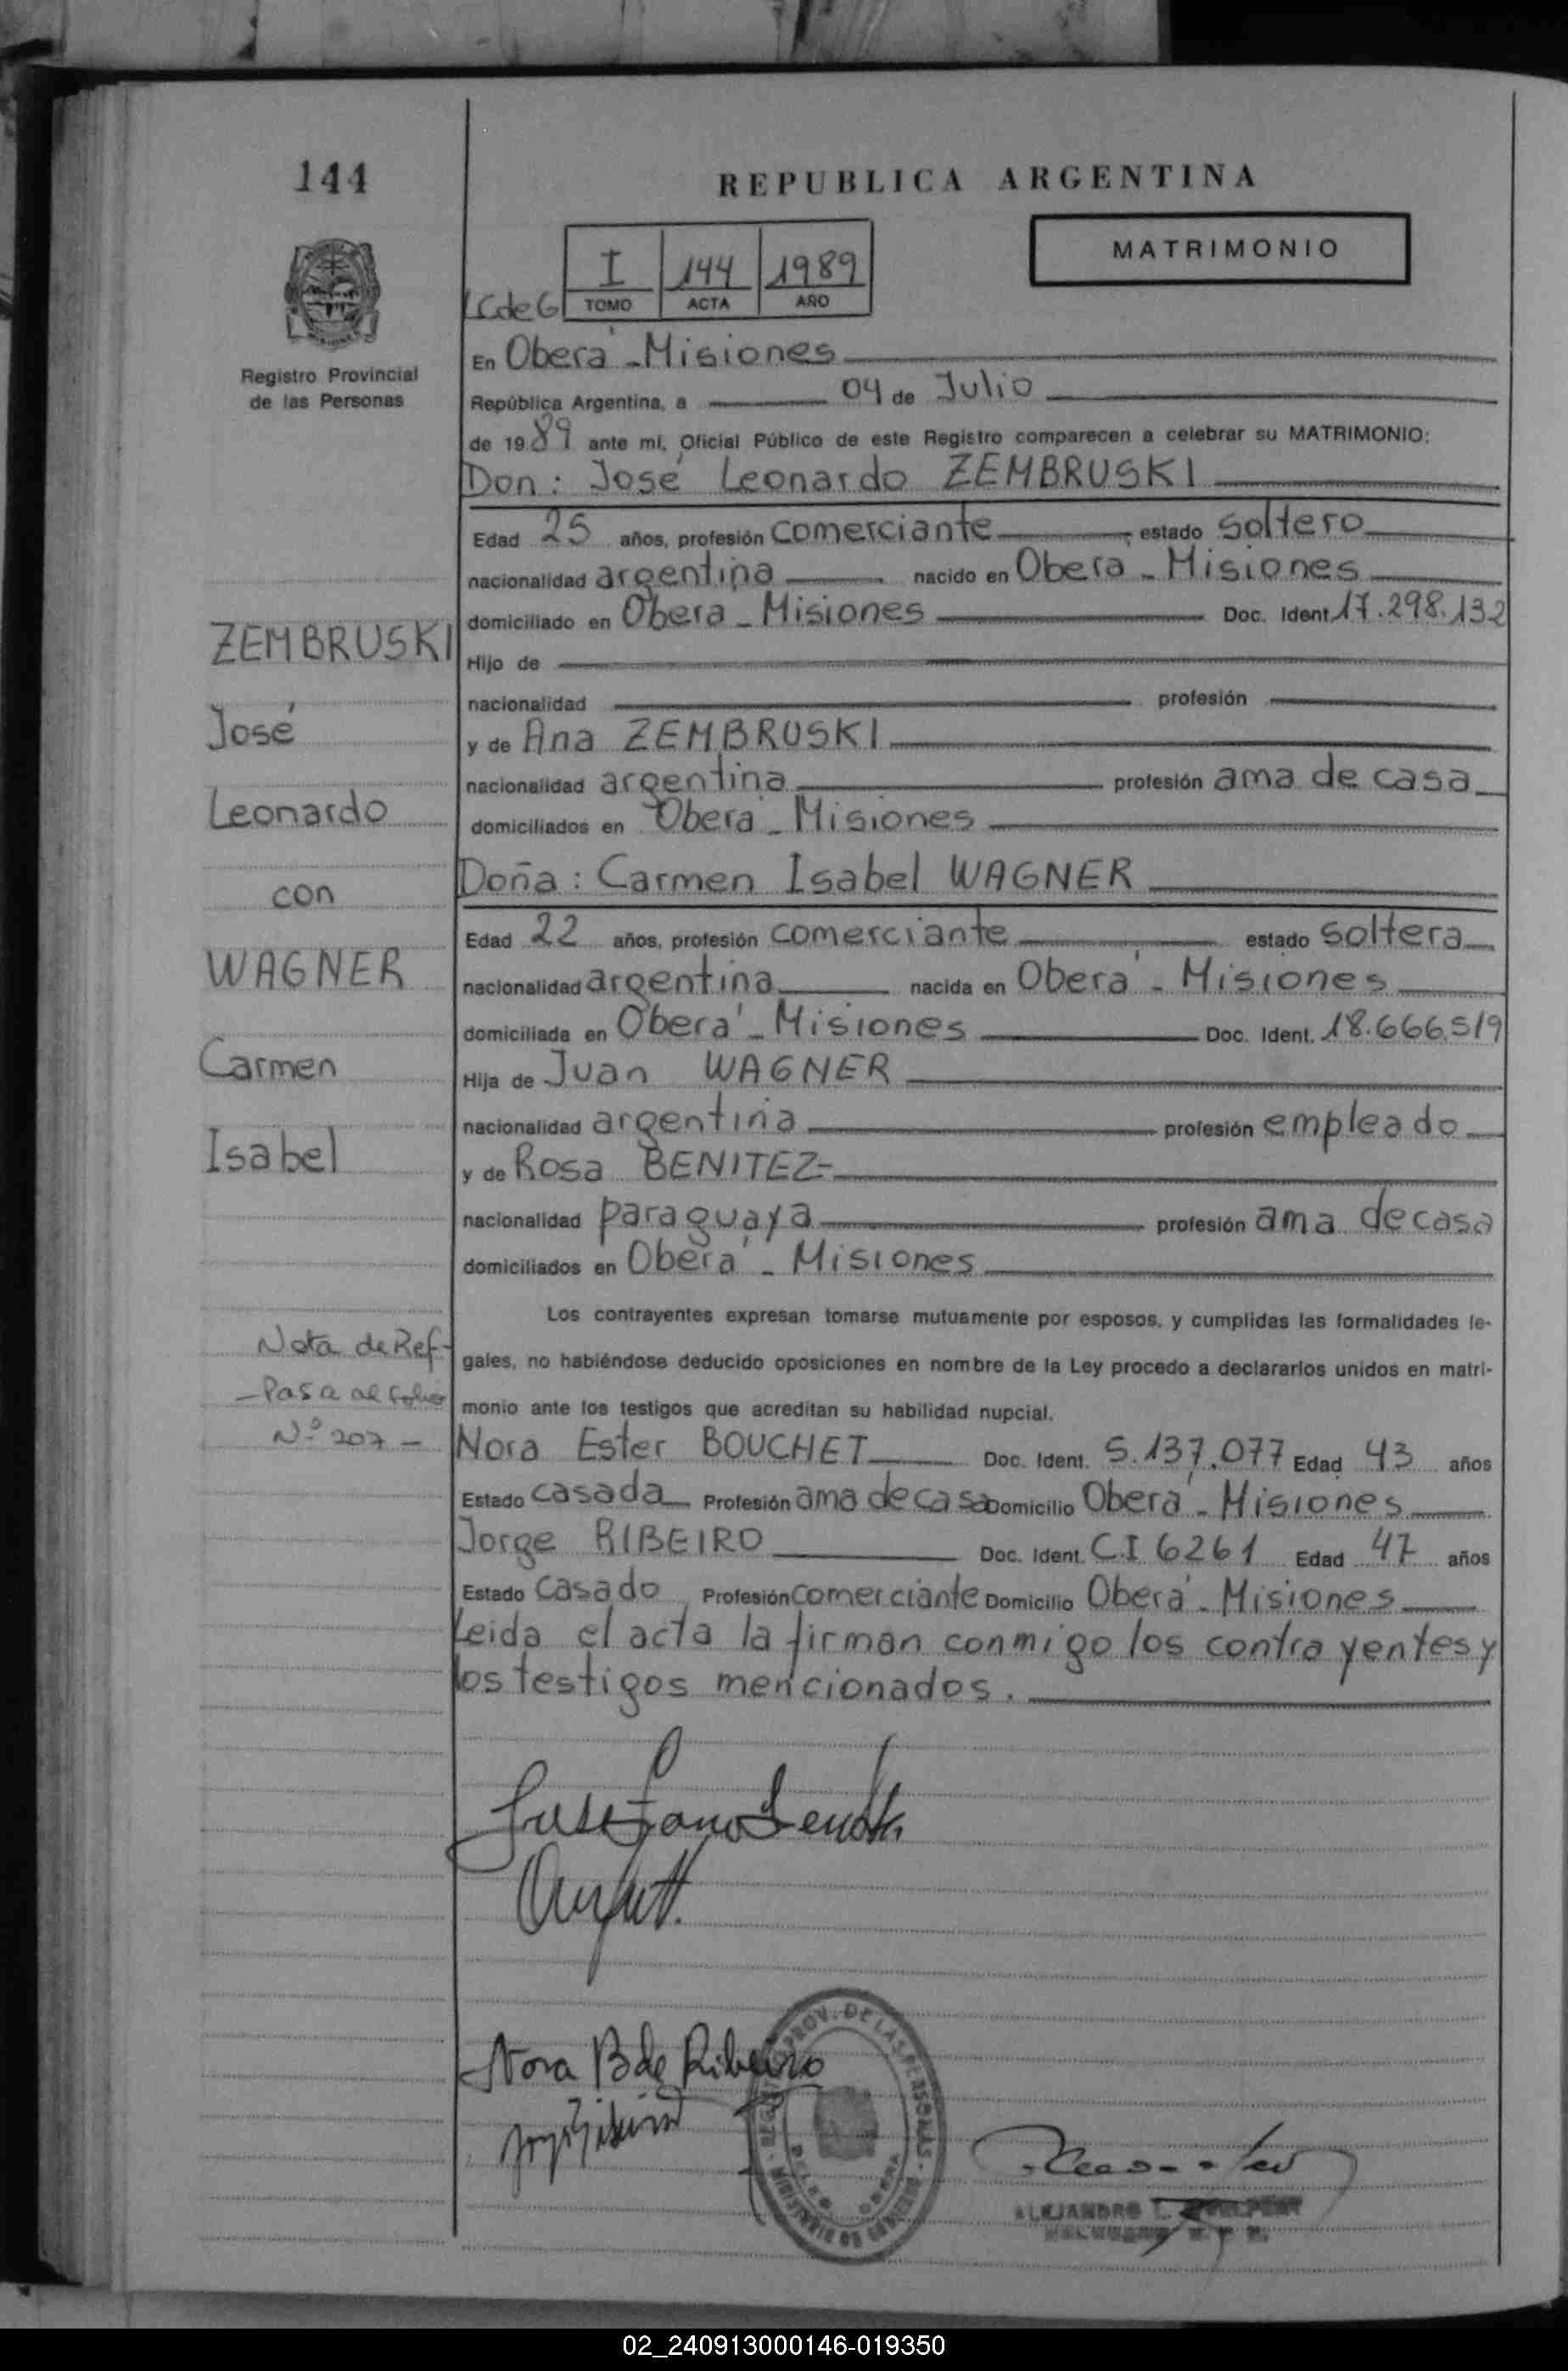 144
REPUBLICA ARGENTINA
MATRIMONIO
I 144 1989
CdeG TOMO ACTA AÑO
Registro Provincial
de las Personas
En Oberá - Misiones
República Argentina, a 04 de Julio
de 1989 ante mí, Oficial Público de este Registro comparecen a celebrar su MATRIMONIO:
Don: José Leonardo ZEMBRUSKI
Edad 25 años, profesión comerciante estado soltero
nacionalidad argentina nacido en Obera - Misiones
domiciliado en Obera - Misiones Doc. Ident. 17.298.132
Hijo de
nacionalidad profesión
y de Ana ZEMBRUSKI
nacionalidad argentina profesión ama de casa
domiciliados en Oberá - Misiones
Doña: Carmen Isabel WAGNER
Edad 22 años, profesión comerciante estado soltera
nacionalidad argentina nacida en Oberá - Misiones
domiciliada en Oberá - Misiones Doc. Ident. 18.666.519
Hija de Juan WAGNER
nacionalidad argentina profesión empleado
y de Rosa BENITEZ=
nacionalidad paraguaya profesión ama de casa
domiciliados en Oberá - Misiones
Los contrayentes expresan tomarse mutuamente por esposos, y cumplidas las formalidades le-
gales, no habiéndose deducido oposiciones en nombre de la Ley procedo a declararlos unidos en matri-
monio ante los testigos que acreditan su habilidad nupcial.
Nora Ester BOUCHET Doc. Ident. 5.137.077 Edad 43 años
Estado casada Profesión ama de casa Domicilio Oberá - Misiones
Jorge RIBEIRO Doc. Ident. C.I 6261 Edad 47 años
Estado casado Profesión comerciante Domicilio Oberá - Misiones
Leida el acta la firman conmigo los contrayentes y
los testigos mencionados.
ZEMBRUSKI
José
Leonardo
con
WAGNER
Carmen
Isabel
Nota de Ref-
- Pasa al folio
Nº 207 -
Nora B de Ribeiro
PROV. DE LAS PERSONAS
ALEJANDRO
02_240913000146-019350